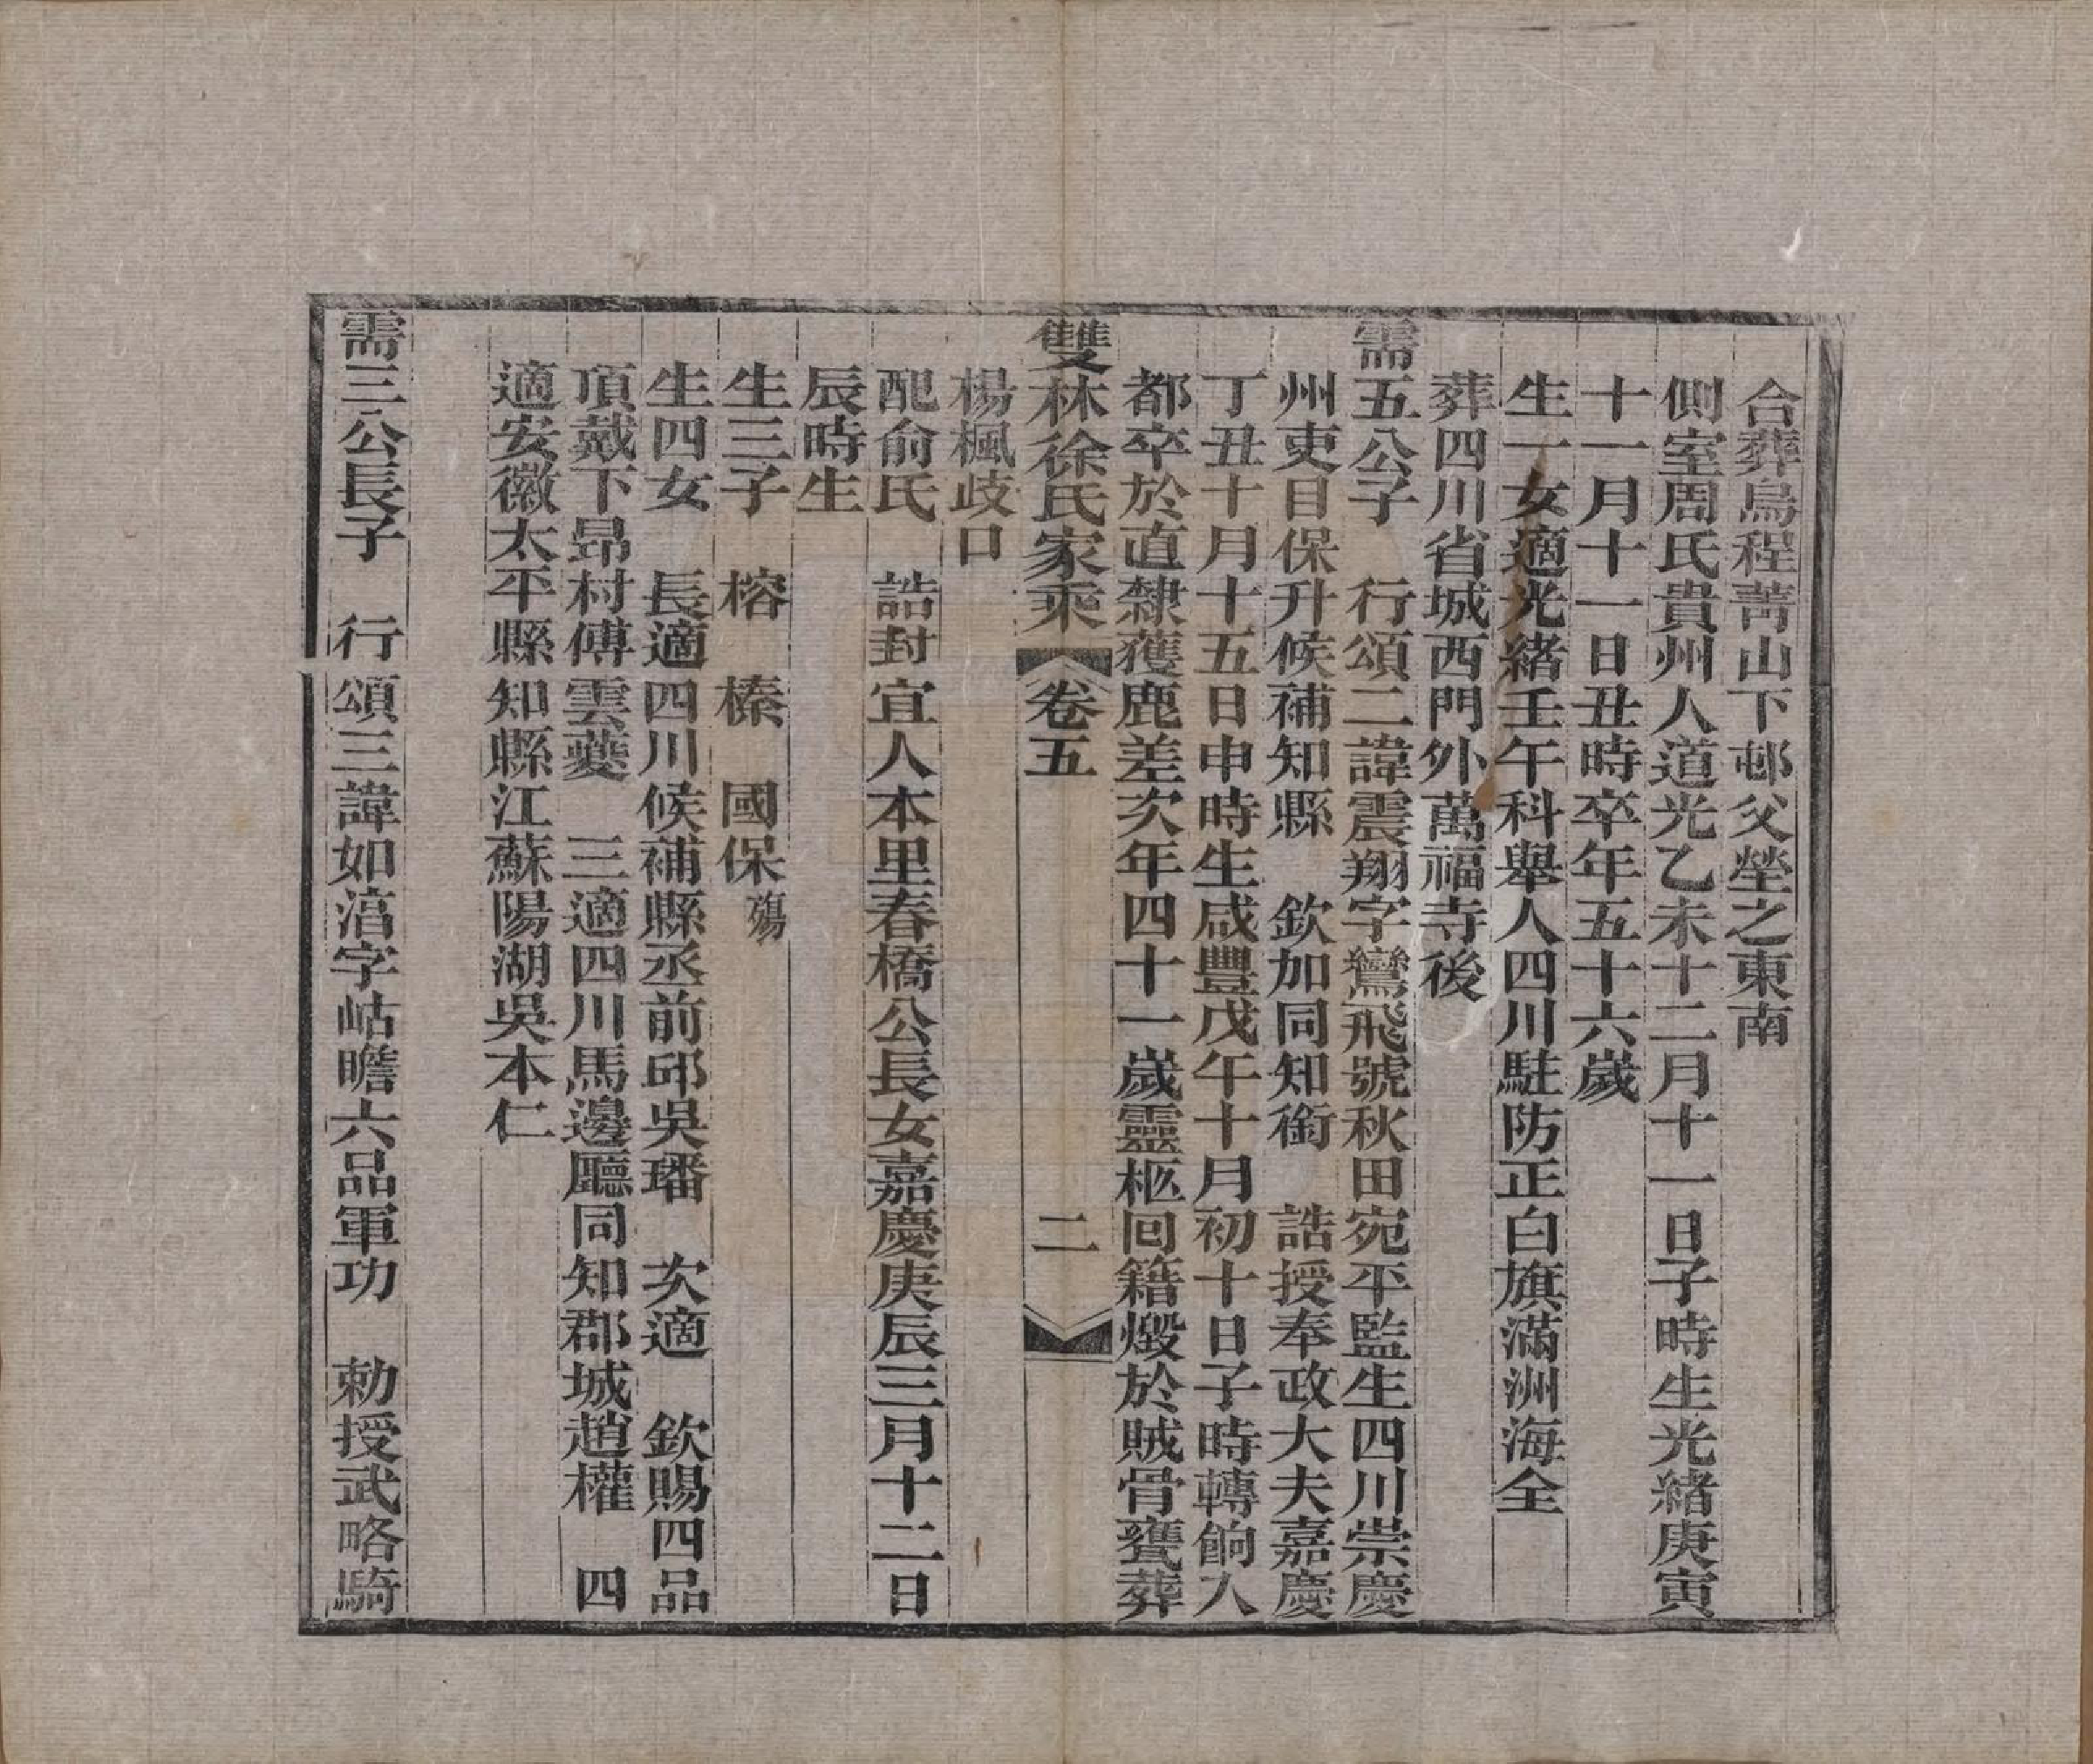 合葬烏程菁山下邨父塋之東南
側室周氏貴州人道光乙未十二月十一日子時生光緒庚寅
十一月十一日丑時卒年五十六歲
生一女適光緒壬午科舉人四川駐防正白旗滿洲海全
葬四川省城西門外萬福寺後
需五公子　行頌二諱震翔字鸞飛號秋田宛平監生四川崇慶
州吏目保升候補知縣　欽加同知銜　誥授奉政大夫嘉慶
丁丑十月十五日申時生咸豐戊午十月初十日子時轉餉入
都卒於直隸獲鹿差次年四十一歲靈柩回籍燬於賊骨甕葬
雙林徐氏家乘　卷五　二
楊楓歧口
配俞氏　誥封宜人本里春橋公長女嘉慶庚辰三月十二日
辰時生
生三子　榕　榛　國保殤
生四女　長適四川候補縣丞前邱吳璠　次適　欽賜四品
頂戴下昂村傅雲夔　三適四川馬邊廳同知郡城趙權　四
適安徽太平縣知縣江蘇陽湖吳本仁
需三公長子　行頌三諱如湻字岵瞻六品軍功　勅授武略騎